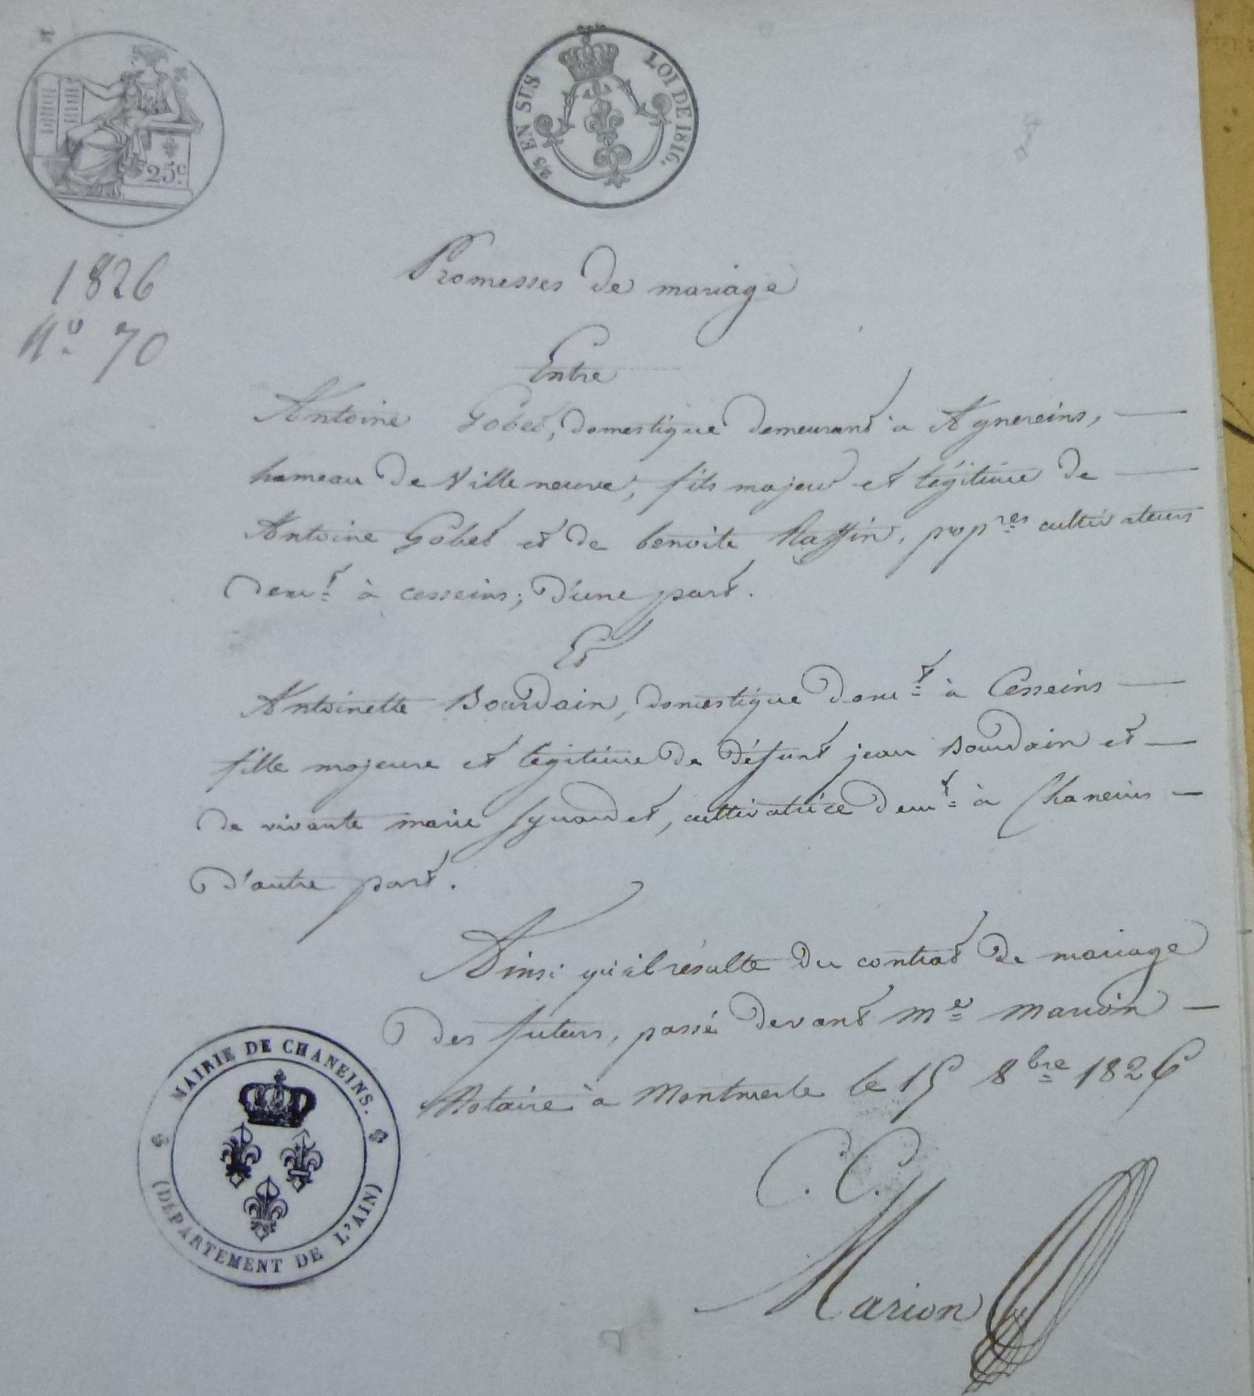 25 EN SUS
LOI DE 1816.
25c.
1826
N° 70
Promesses de mariage
Entre
Antoine Gobet, domestique demeurant à Agnereins,
hameau de Villeneuve, fils majeur et légitime de
Antoine Gobet et de benoite Raffin, popres cultivateurs
demt à cesseins; d'une part.
Et
Antoinette Bourdain, domestique demt à Cesseins
fille majeure et légitime de défunt jean Bourdain et
de vivante marie, cultivatrice demt à Chaneins
d'autre part.
Ainsi qu'il résulte du contrat de mariage
des futurs, passé devant Me Marion
Notaire à Montmerle le 15 8bre 1826
C. C.
Marion
MAIRIE DE CHANEINS.
(DEPARTEMENT DE L'AIN)